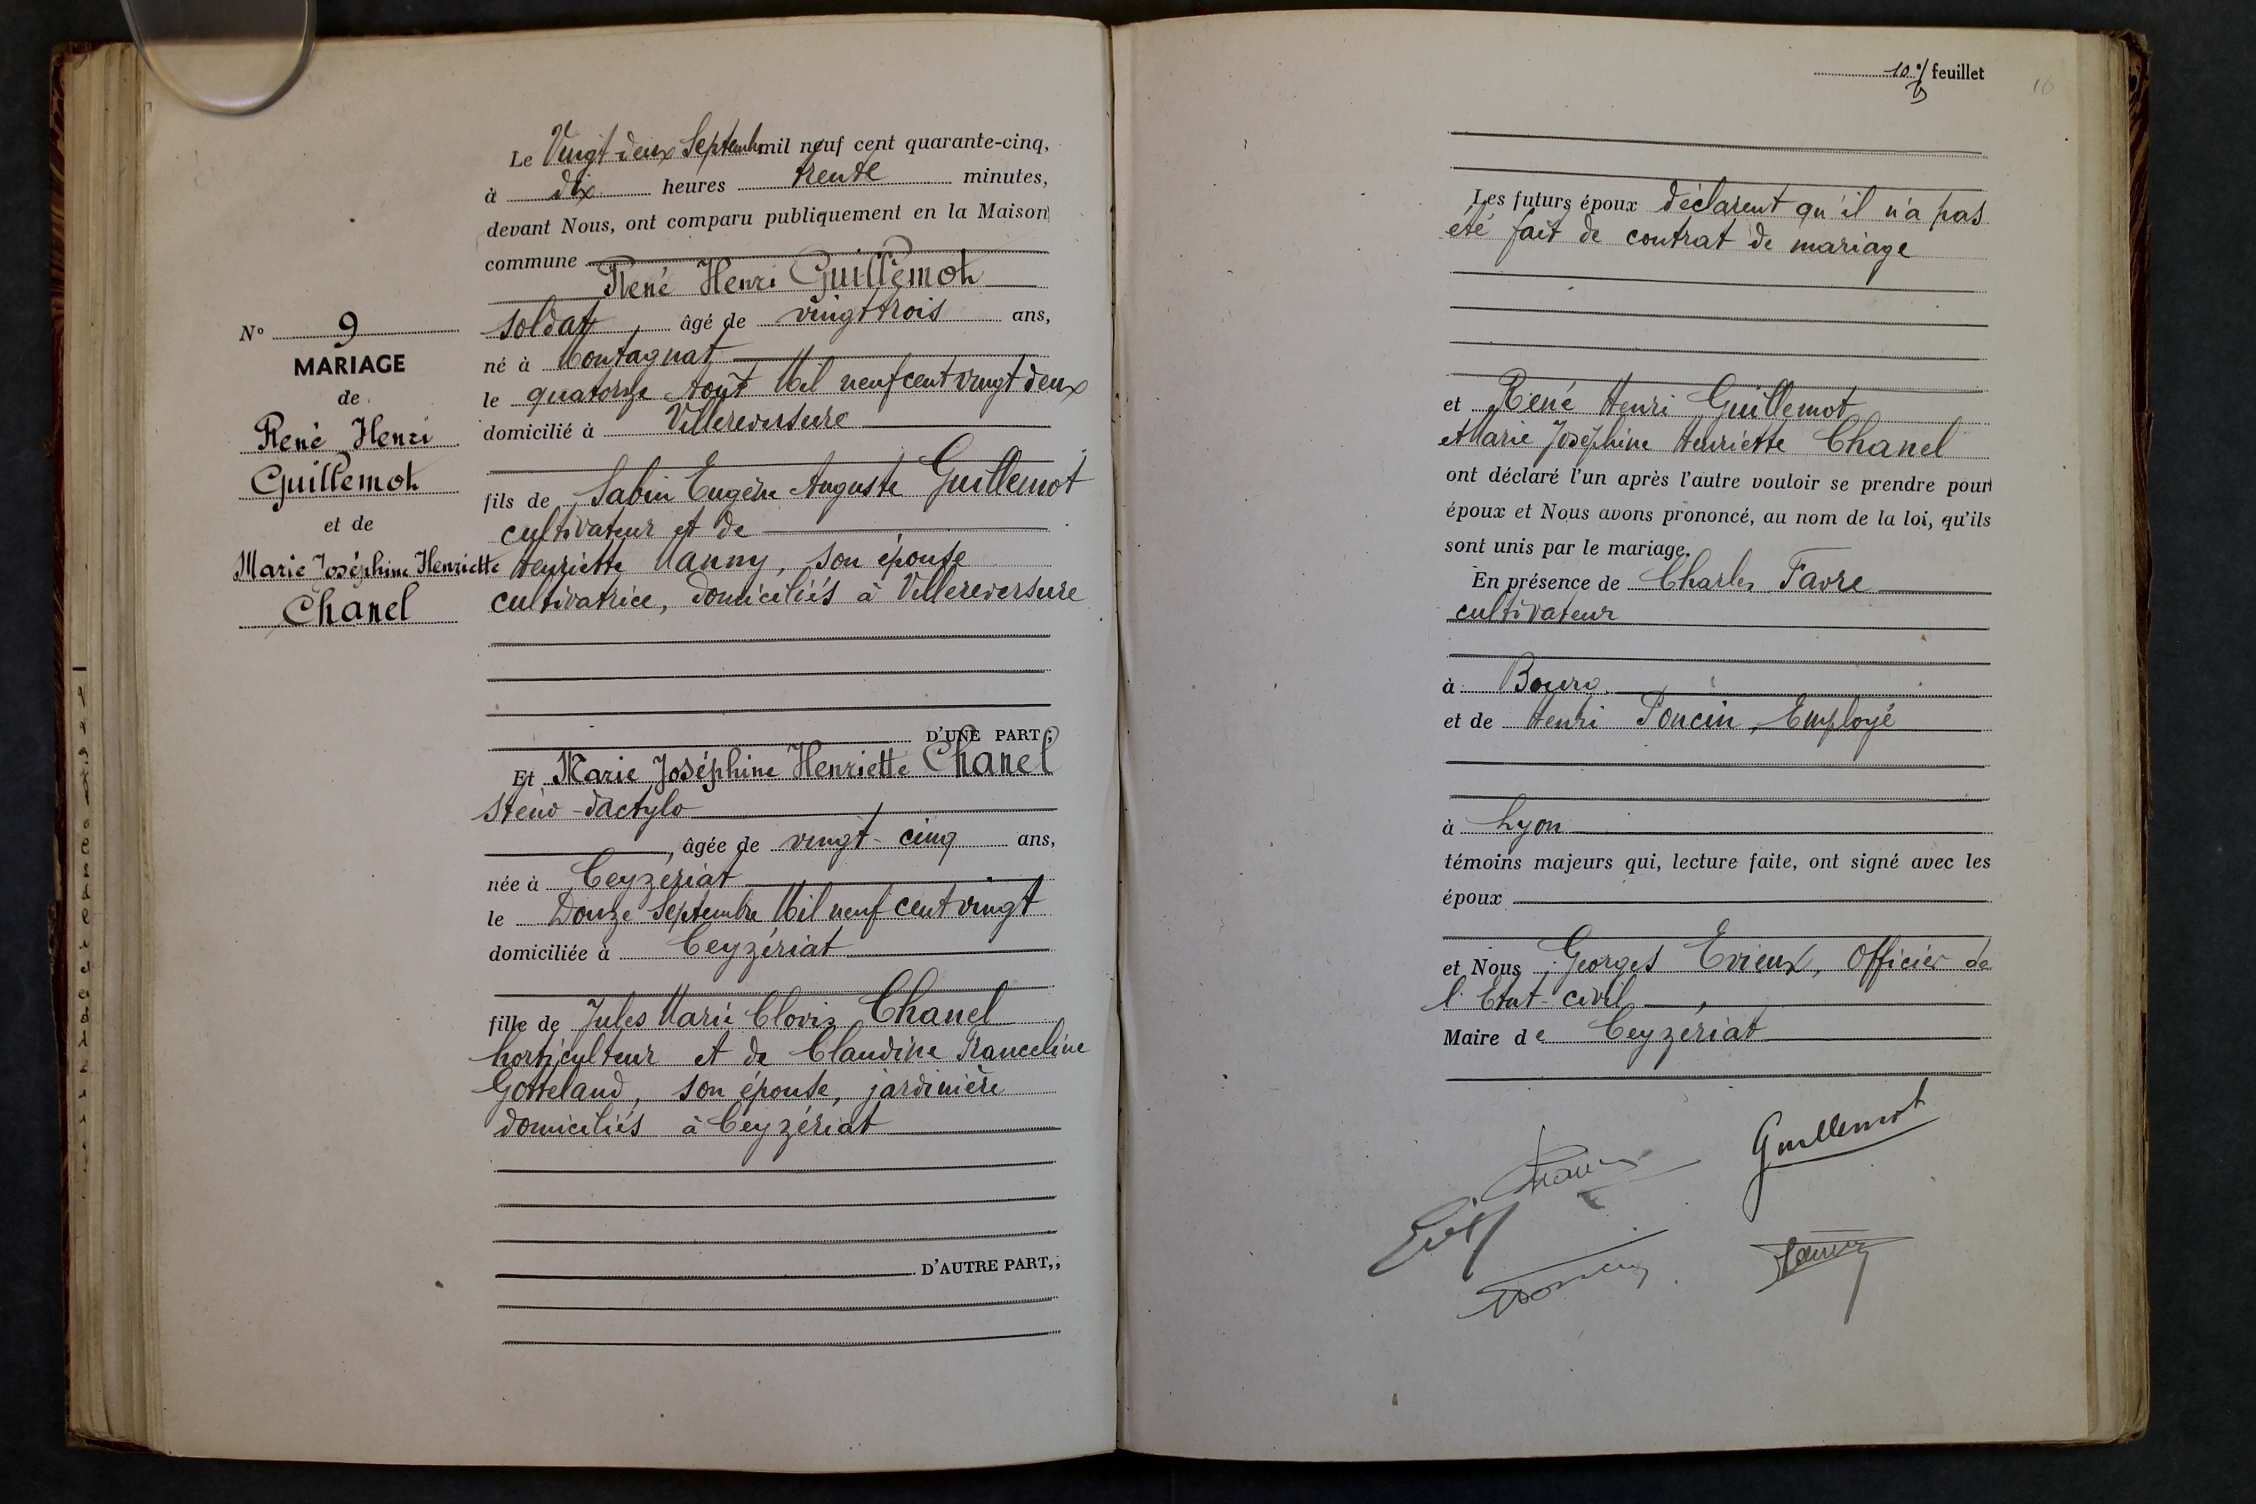 N° 9
MARIAGE
de
René Henri
Guillemot
et de
Marie Joséphine Henriette
Chanel
Le Vingt-deux Septembre mil neuf cent quarante-cinq,
à dix heures trente minutes,
devant Nous, ont comparu publiquement en la Maison
commune
René Henri Guillemot
soldat, âgé de vingt trois ans,
né à Montagnat
le quatorze Août Mil neuf cent vingt deux
domicilié à Villereversure
fils de Sabin Eugène Auguste Guillemot
cultivateur et de
Henriette Nanny, son épouse
cultivatrice, domiciliés à Villereversure
D'UNE PART;
Et Marie Joséphine Henriette Chanel
sténo-dactylo
, âgée de vingt-cinq ans,
née à Ceyzériat
le Douze Septembre Mil neuf cent vingt
domiciliée à Ceyzériat
fille de Jules Marie Clovis Chanel
horticulteur et de Claudine Franceline
Gotteland, son épouse, jardinière
domiciliés à Ceyzériat
D'AUTRE PART,;
10 feuillet
10
Les futurs époux déclarent qu'il n'a pas
été fait de contrat de mariage
et René Henri Guillemot
et Marie Joséphine Henriette Chanel
ont déclaré l'un après l'autre vouloir se prendre pour
époux et Nous avons prononcé, au nom de la loi, qu'ils
sont unis par le mariage.
En présence de Charles Favre
cultivateur
à Bourg
et de Henri Poncin, Employé
à Lyon
témoins majeurs qui, lecture faite, ont signé avec les
époux
et Nous Georges Evieux, Officier de
l'Etat-civil,
Maire de Ceyzériat
Guillemot